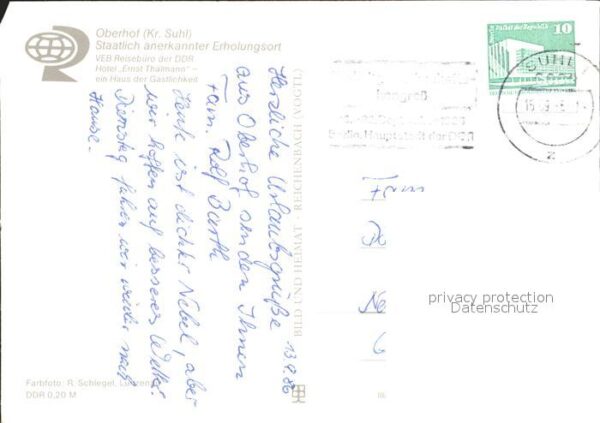 Oberhof (Kr. Suhl)
Staatlich anerkannter Erholungsort
VEB Reisebüro der DDR
Hotel „Ernst Thälmann" –
ein Haus der Gastlichkeit
10
SUHL
kongreß
Berlin, Hauptstadt der DDR
13.9.86
Herzliche Urlaubsgrüße
aus Oberhof senden Ihnen
Fam. Rolf Barth
Heute ist dichter Nebel, aber
wir hoffen auf besseres Wetter.
Dienstag fahren wir wieder nach
Hause.
BILD UND HEIMAT REICHENBACH (VOGTL)
privacy protection
Datenschutz
Farbfoto: R. Schlegel,
DDR 0,20 M